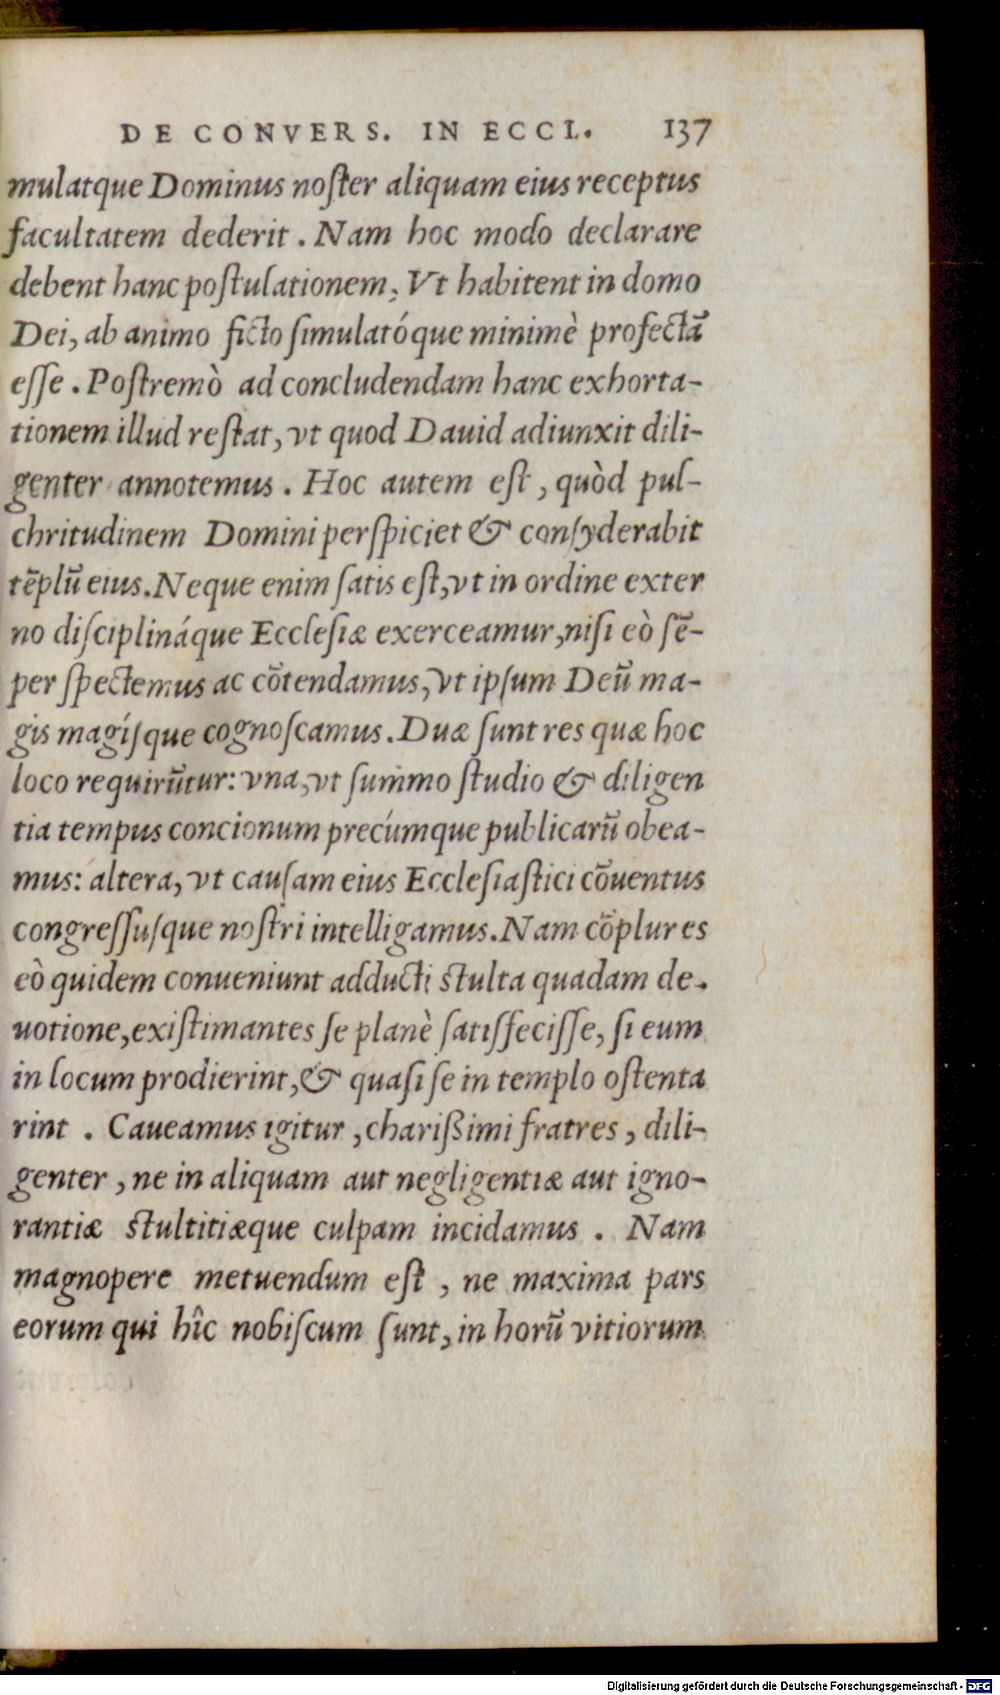 DE CONVERS. IN ECCL. 137
mulatque Dominus noſter aliquam eius receptus
facultatem dederit . Nam hoc modo declarare
debent hanc poſtulationem, Vt habitent in domo
Dei, ab animo ficto ſimulatóque minimè profectā
eſſe . Poſtremò ad concludendam hanc exhorta-
tionem illud reſtat, vt quod Dauid adiunxit dili-
genter annotemus . Hoc autem eſt , quòd pul-
chritudinem Domini perſpiciet & conſyderabit
tēplū eius. Neque enim ſatis eſt, vt in ordine exter
no diſciplináque Eccleſiæ exerceamur, niſi eò ſē-
per ſpectemus ac cōtendamus, vt ipſum Deū ma-
gis magíſque cognoſcamus. Duæ ſunt res quæ hoc
loco requirūtur: vna, vt ſummo ſtudio & diligen
tia tempus concionum precúmque publicarū obea-
mus: altera, vt cauſam eius Eccleſiaſtici cōuentus
congreſſuſque noſtri intelligamus. Nam cōplures
eò quidem conueniunt adducti ſtulta quadam de-
uotione, exiſtimantes ſe planè ſatiſfeciſſe, ſi eum
in locum prodierint, & quaſi ſe in templo oſtenta
rint . Caueamus igitur , charißimi fratres , dili-
genter , ne in aliquam aut negligentiæ aut igno-
rantiæ ſtultitiæque culpam incidamus . Nam
magnopere metuendum eſt , ne maxima pars
eorum qui hîc nobiſcum ſunt, in horū vitiorum
Digitalisierung gefördert durch die Deutsche Forschungsgemeinschaft - DFG